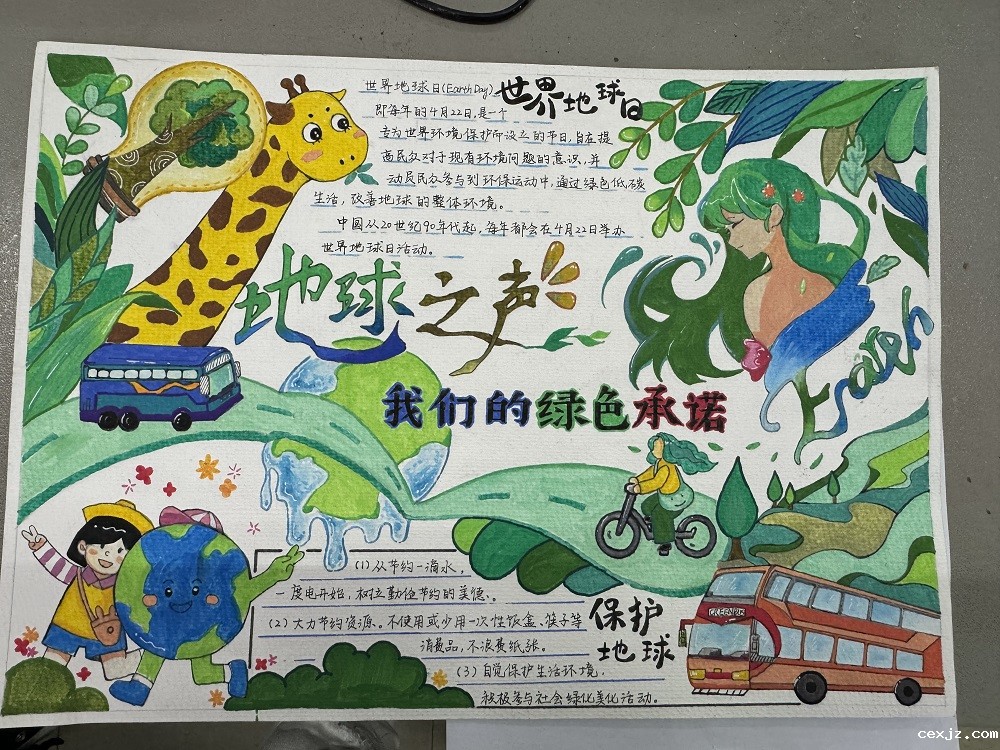 世界地球日
世界地球日(Earth Day)
即每年的4月22日,是一个
专为世界环境保护而设立的节日,旨在提
高民众对于现有环境问题的意识,并
动员民众参与到环保运动中,通过绿色低碳
生活,改善地球的整体环境。
中国从20世纪90年代起,每年都会在4月22日举办
世界地球日活动。
地球之声
Earth
我们的绿色承诺
(1)从节约一滴水,
一度电开始,树立勤俭节约的美德。
(2)大力节约资源。不使用或少用一次性饭盒、筷子等
消费品,不浪费纸张。
(3)自觉保护生活环境,
积极参与社会绿化美化活动。
保护
地球
cexjz.com